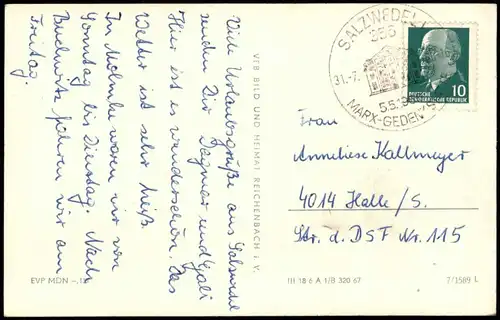 Viele Urlaubsgrüße aus Salzwedel
senden Dir Dagmar und
Hier ist es wunderschön. Das
Wetter ist sehr heiß
In Molmke waren wir von
Sonntag bis Dienstag. Nach
fahren wir am
Freitag.
VEB BILD UND HEIMAT REICHENBACH i. V.
EVP MDN –.15
III 18 6 A 1/B 320 67
7/1589 L
SALZWEDEL
356
31.-7.
5.5.
MARX-GEDEN
DEUTSCHE
DEMOKRATISCHE REPUBLIK
10
Frau
Anneliese Kallmeyer
4014 Halle/S.
Str. d. DSF Nr. 115